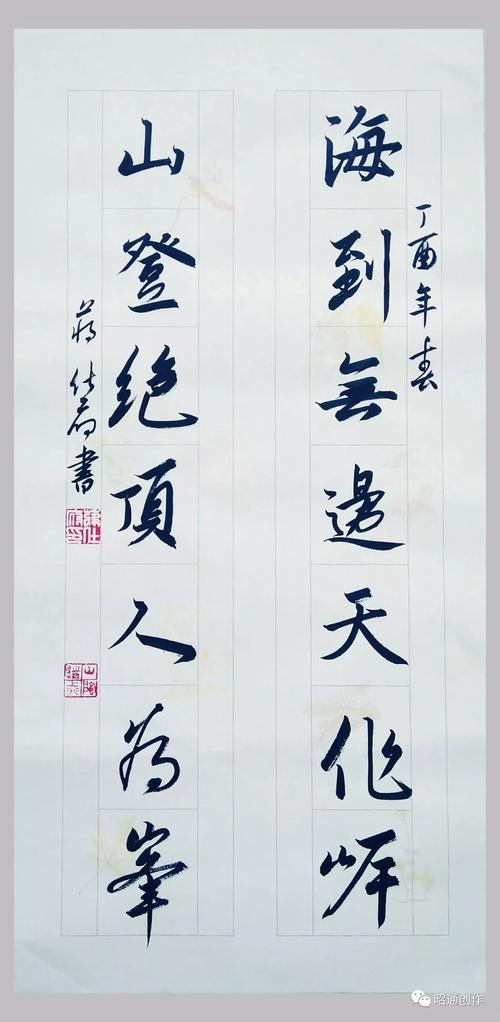 丁酉年春
海到無邊天作岸
山登絶頂人為峯
蔣仕書
昭通创作